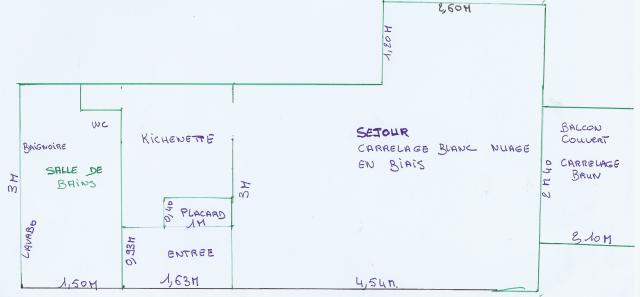 2,60M
1,20M
WC
KICHENETTE
SEJOUR
CARRELAGE BLANC NUAGE
EN BIAIS
BALCON
COUVERT
CARRELAGE
BRUN
BAIGNOIRE
SALLE DE
BAINS
3M
3M
2M40
0,40
PLACARD
1M
LAVABO
0,93M
ENTREE
2,10M
1,50M
1,63M
4,54M